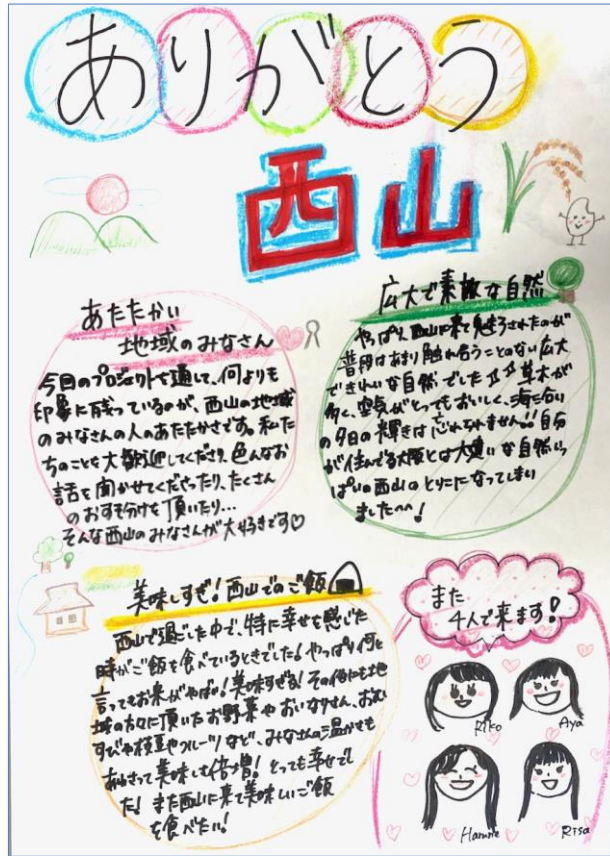 ありがとう
西山
あたたかい
地域のみなさん
今回のプロジェクトを通して、何よりも
印象に残っているのが、西山の地域
のみなさんの人のあたたかさです。私た
ちのことを大歓迎してくださり、色んなお
話を聞かせてくださったり、たくさん
のおすそ分けを頂いたり...
そんな西山のみなさんが大好きです♡
広大で素敵な自然
やっぱり西山に来て魅了されたのが
普段はあまり触れ合うことのない広大
できれいな自然でした!!草木が
多く、空気がとってもおいしく、海沿い
の夕日の輝きは忘れられません!!自分
が住んでる大阪とは大違いな自然いっ
ぱいの西山のとりこになってしまい
ました^^!
美味しすぎ!西山でのご飯
西山で過ごした中で、特に幸せを感じた
時がご飯を食べているときでした!やっぱり何と
言ってもお米がやばい!美味すぎる!その他にも地
域の方々に頂いたお野菜やおいなりさん、おむ
すびや枝豆やフルーツなど、みなさんの温かさも
あわさって美味しさ倍増!とっても幸せでし
た!また西山に来て美味しいご飯
を食べたい!
また
4人で来ます!
Riko
Aya
Harune
Risa